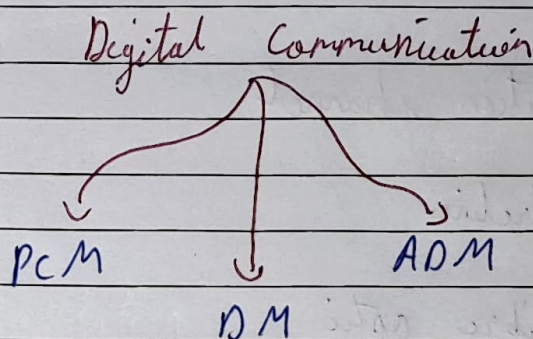 Digital Communication
PCM
ADM
DM